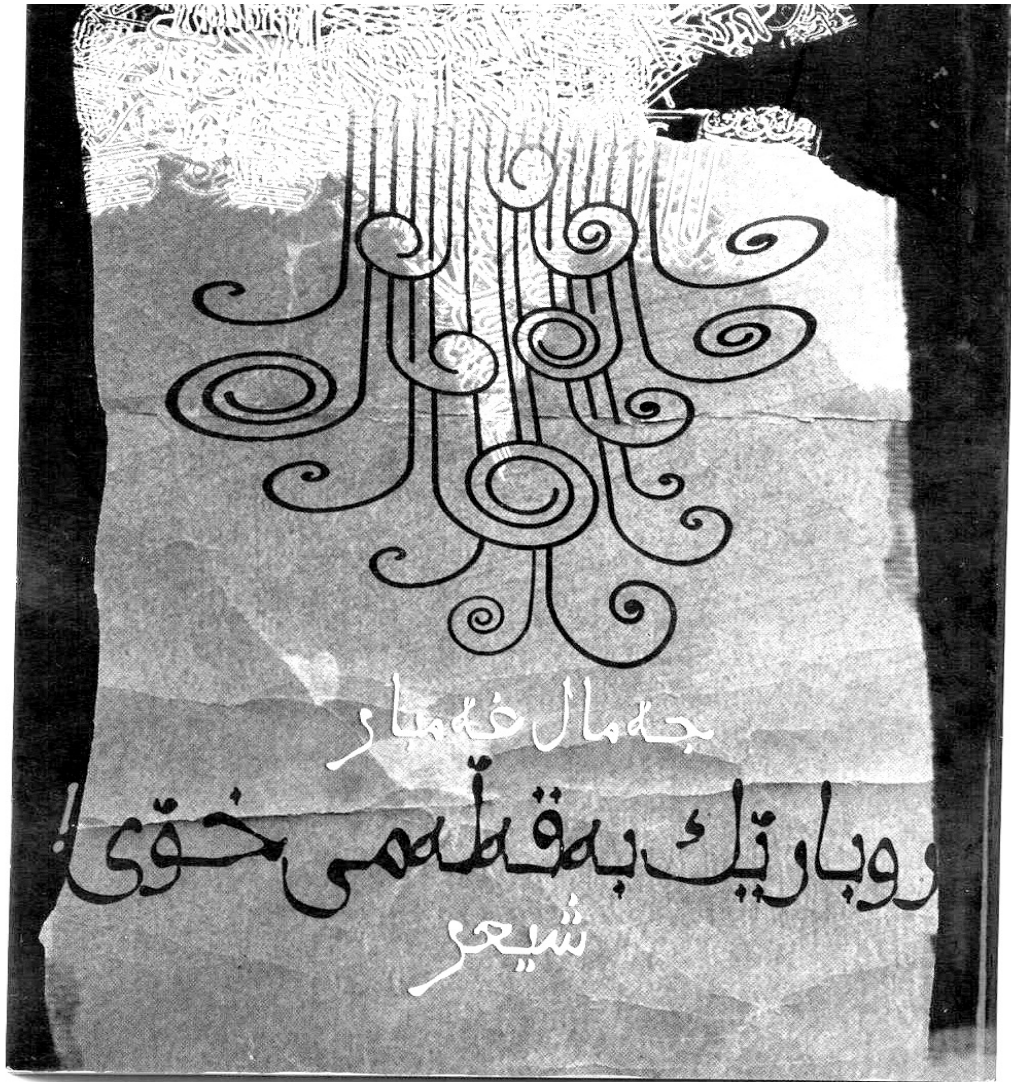 جەمال غەمبار
روبارێك بەقەڵەمی خۆی!
شیعر